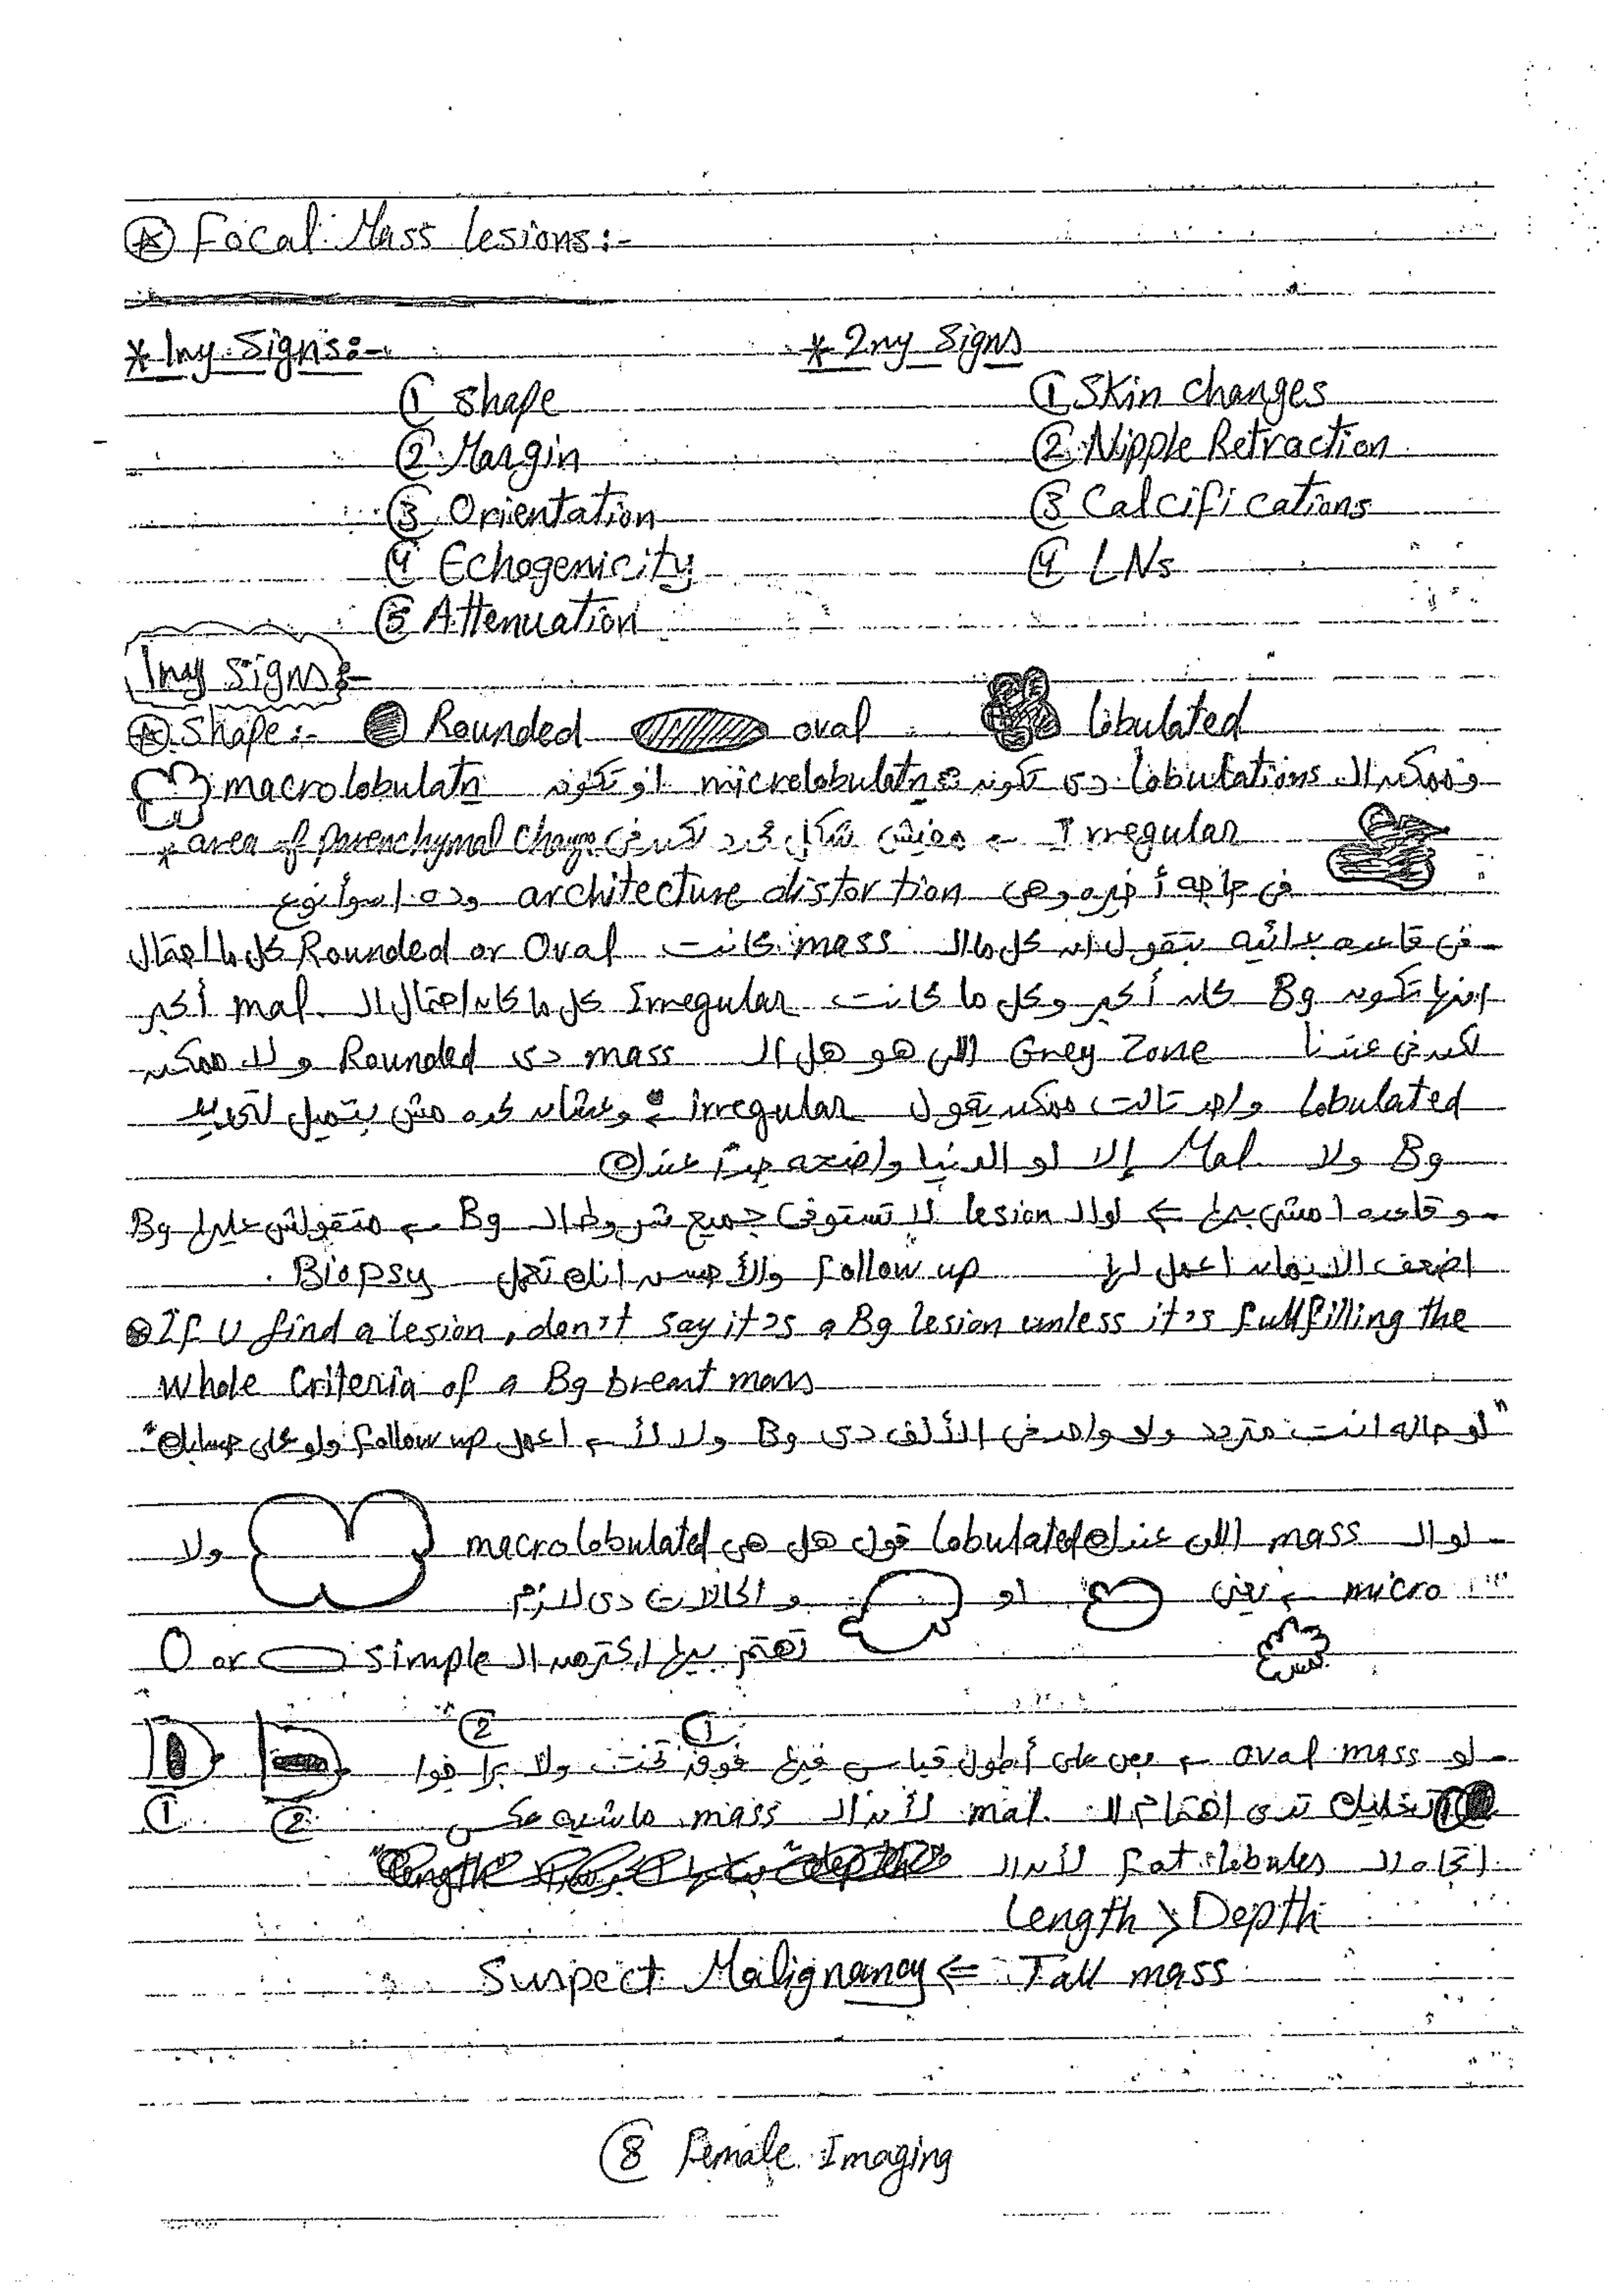 Focal Mass lesions:-
* 1ny Signs:-
① Shape
② Margin
③ Orientation
④ Echogenicity
⑤ Attenuation
* 2ny Signs
① Skin changes
② Nipple Retraction
③ Calcifications
④ LNs
1ny Signs:-
Shape:- Rounded oval lobulated
وممكن ال lobulations دى تكون microlobulatn او تكون macrolobulatn
Irregular ← مفيش شكل محدد لكن فى area of parenchymal change *
فى حاجه أخيره وهى architecture distortion وده اسوأ نوع
- فى قاعده بدائيه بتقول ان كل ما ال mass كانت Rounded or Oval كل ما احتمال
انها تكون Bg كان أكبر وكل ما كانت Irregular كل ما كان احتمال ال mal. أكبر
لكن فى عندنا Grey Zone اللى هو هل ال mass دى Rounded ولا ممكن
lobulated واحد تالت ممكن يقول irregular وعشان كده مش بتميل
Bg ولا Mal. إلا لو الدنيا واضحه جداً عندك
- وقاعده امشى بيها ← لو ال lesion لا تستوفى جميع شروط ال Bg ← متقولش عليها Bg
اضعف الايمان اعمل لها follow up والأحسن انك تعمل Biopsy .
If U find a lesion, don't say it's a Bg lesion unless it's fullfilling the
whole Criteria of a Bg breast mass
"لو حاله انت متردد ولا واحد فى الألف دى Bg ولا لأ ← اعمل follow up ولو على حسابك"
- لو ال mass اللى عندك lobulated قول هل هى macrolobulated ولا
micro ← يعنى او والحالات دى لازم
تهتم بيها اكتر من ال simple or
- لو oval mass ← بين على أطول قياس فيها فوق تحت ولا
① ②
① ②
تخليك تدى اهتمام ال mal. لأن ال mass ماشيه عكس
اتجاه ال fat lobules لأن ال
Length > Depth
Tall mass ⇒ Suspect Malignancy
⑧ Female Imaging